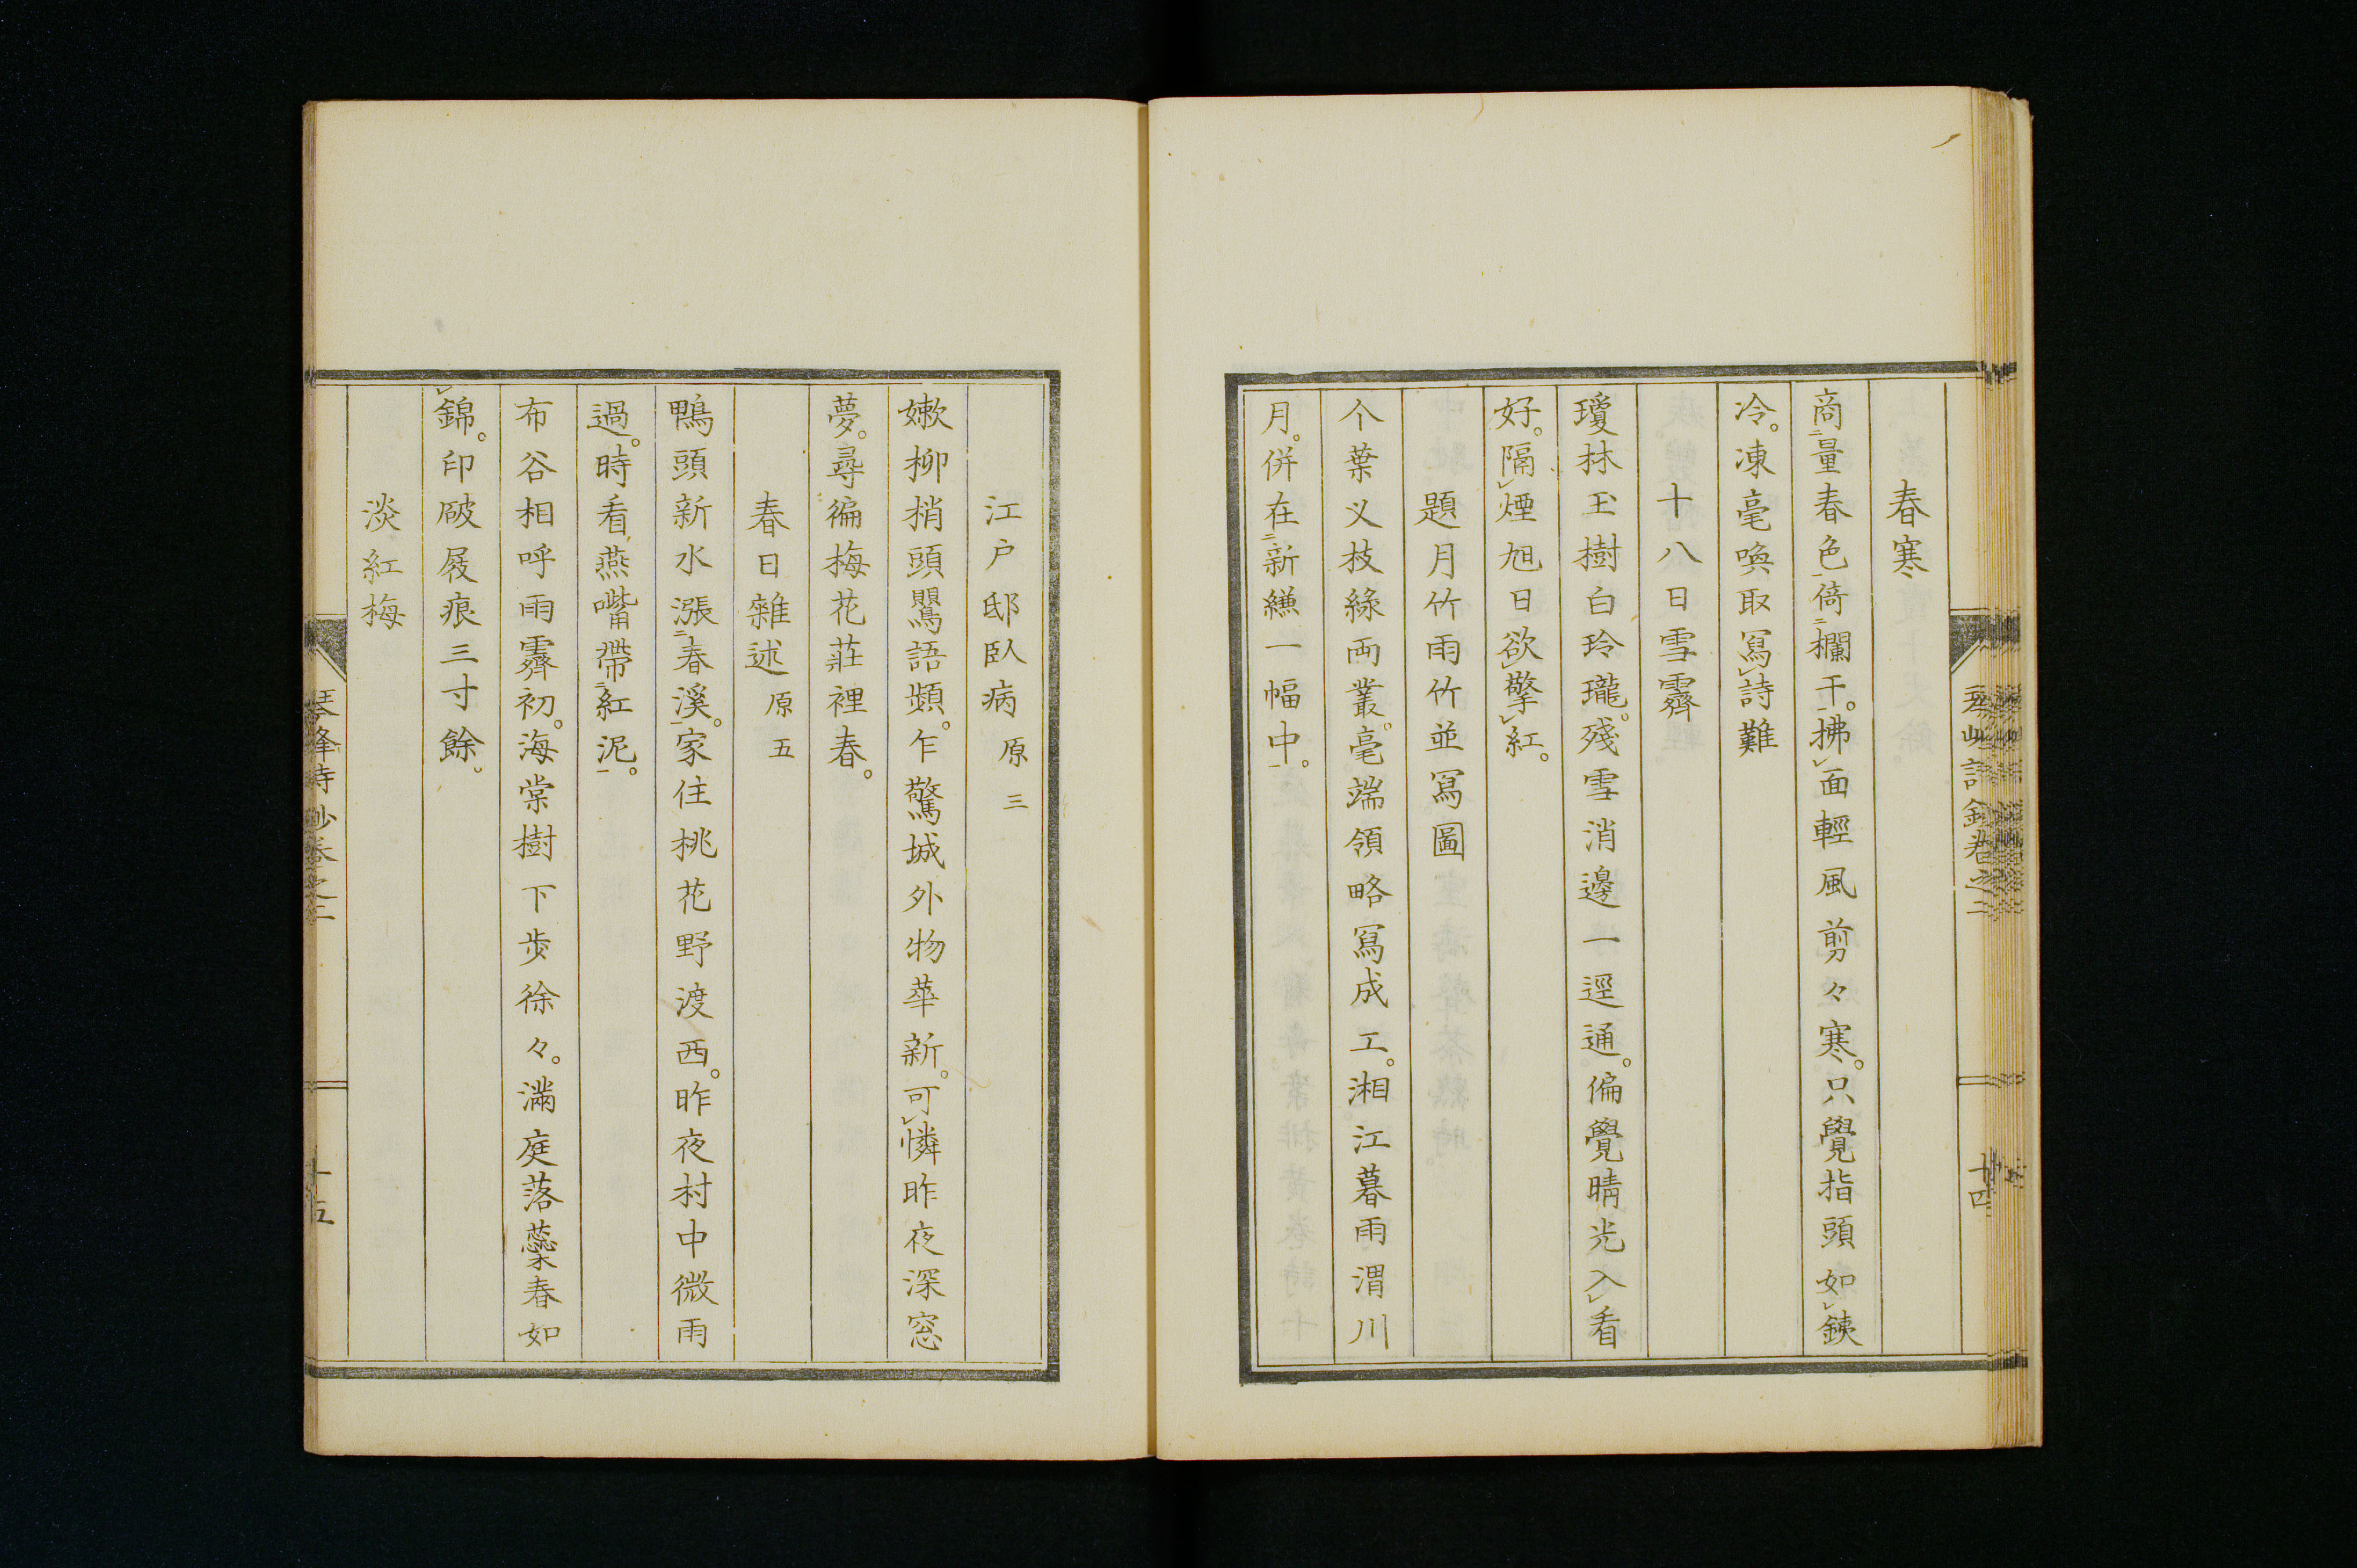 春寒
商二量春色一倚二欄干一。拂レ面輕風剪々寒。只覺指頭如レ銕
冷。凍毫喚取寫レ詩難
十八日雪霽
瓊林玉樹白玲瓏。殘雪消邊一逕通。偏覺晴光入レ看
好。隔レ煙旭日欲レ擎レ紅。
題月竹雨竹並寫圖
个葉义枝綠兩叢。毫端領略寫成工。湘江暮雨渭川
月。併在二新縑一幅中一。
江戸邸臥病 原三
嫩柳梢頭鸎語頻。乍驚城外物華新。可レ憐昨夜深窓
夢。尋徧梅花莊裡春。
春日雜述 原五
鴨頭新水漲二春溪一。家住桃花野渡西。昨夜村中微雨
過。時看燕嘴帶二紅泥一。
布谷相呼雨霽初。海棠樹下步徐々。滿庭落蘂春如
レ錦。印破屐痕三寸餘。
淡紅梅
琴峰詩鈔卷之二
十四
十五